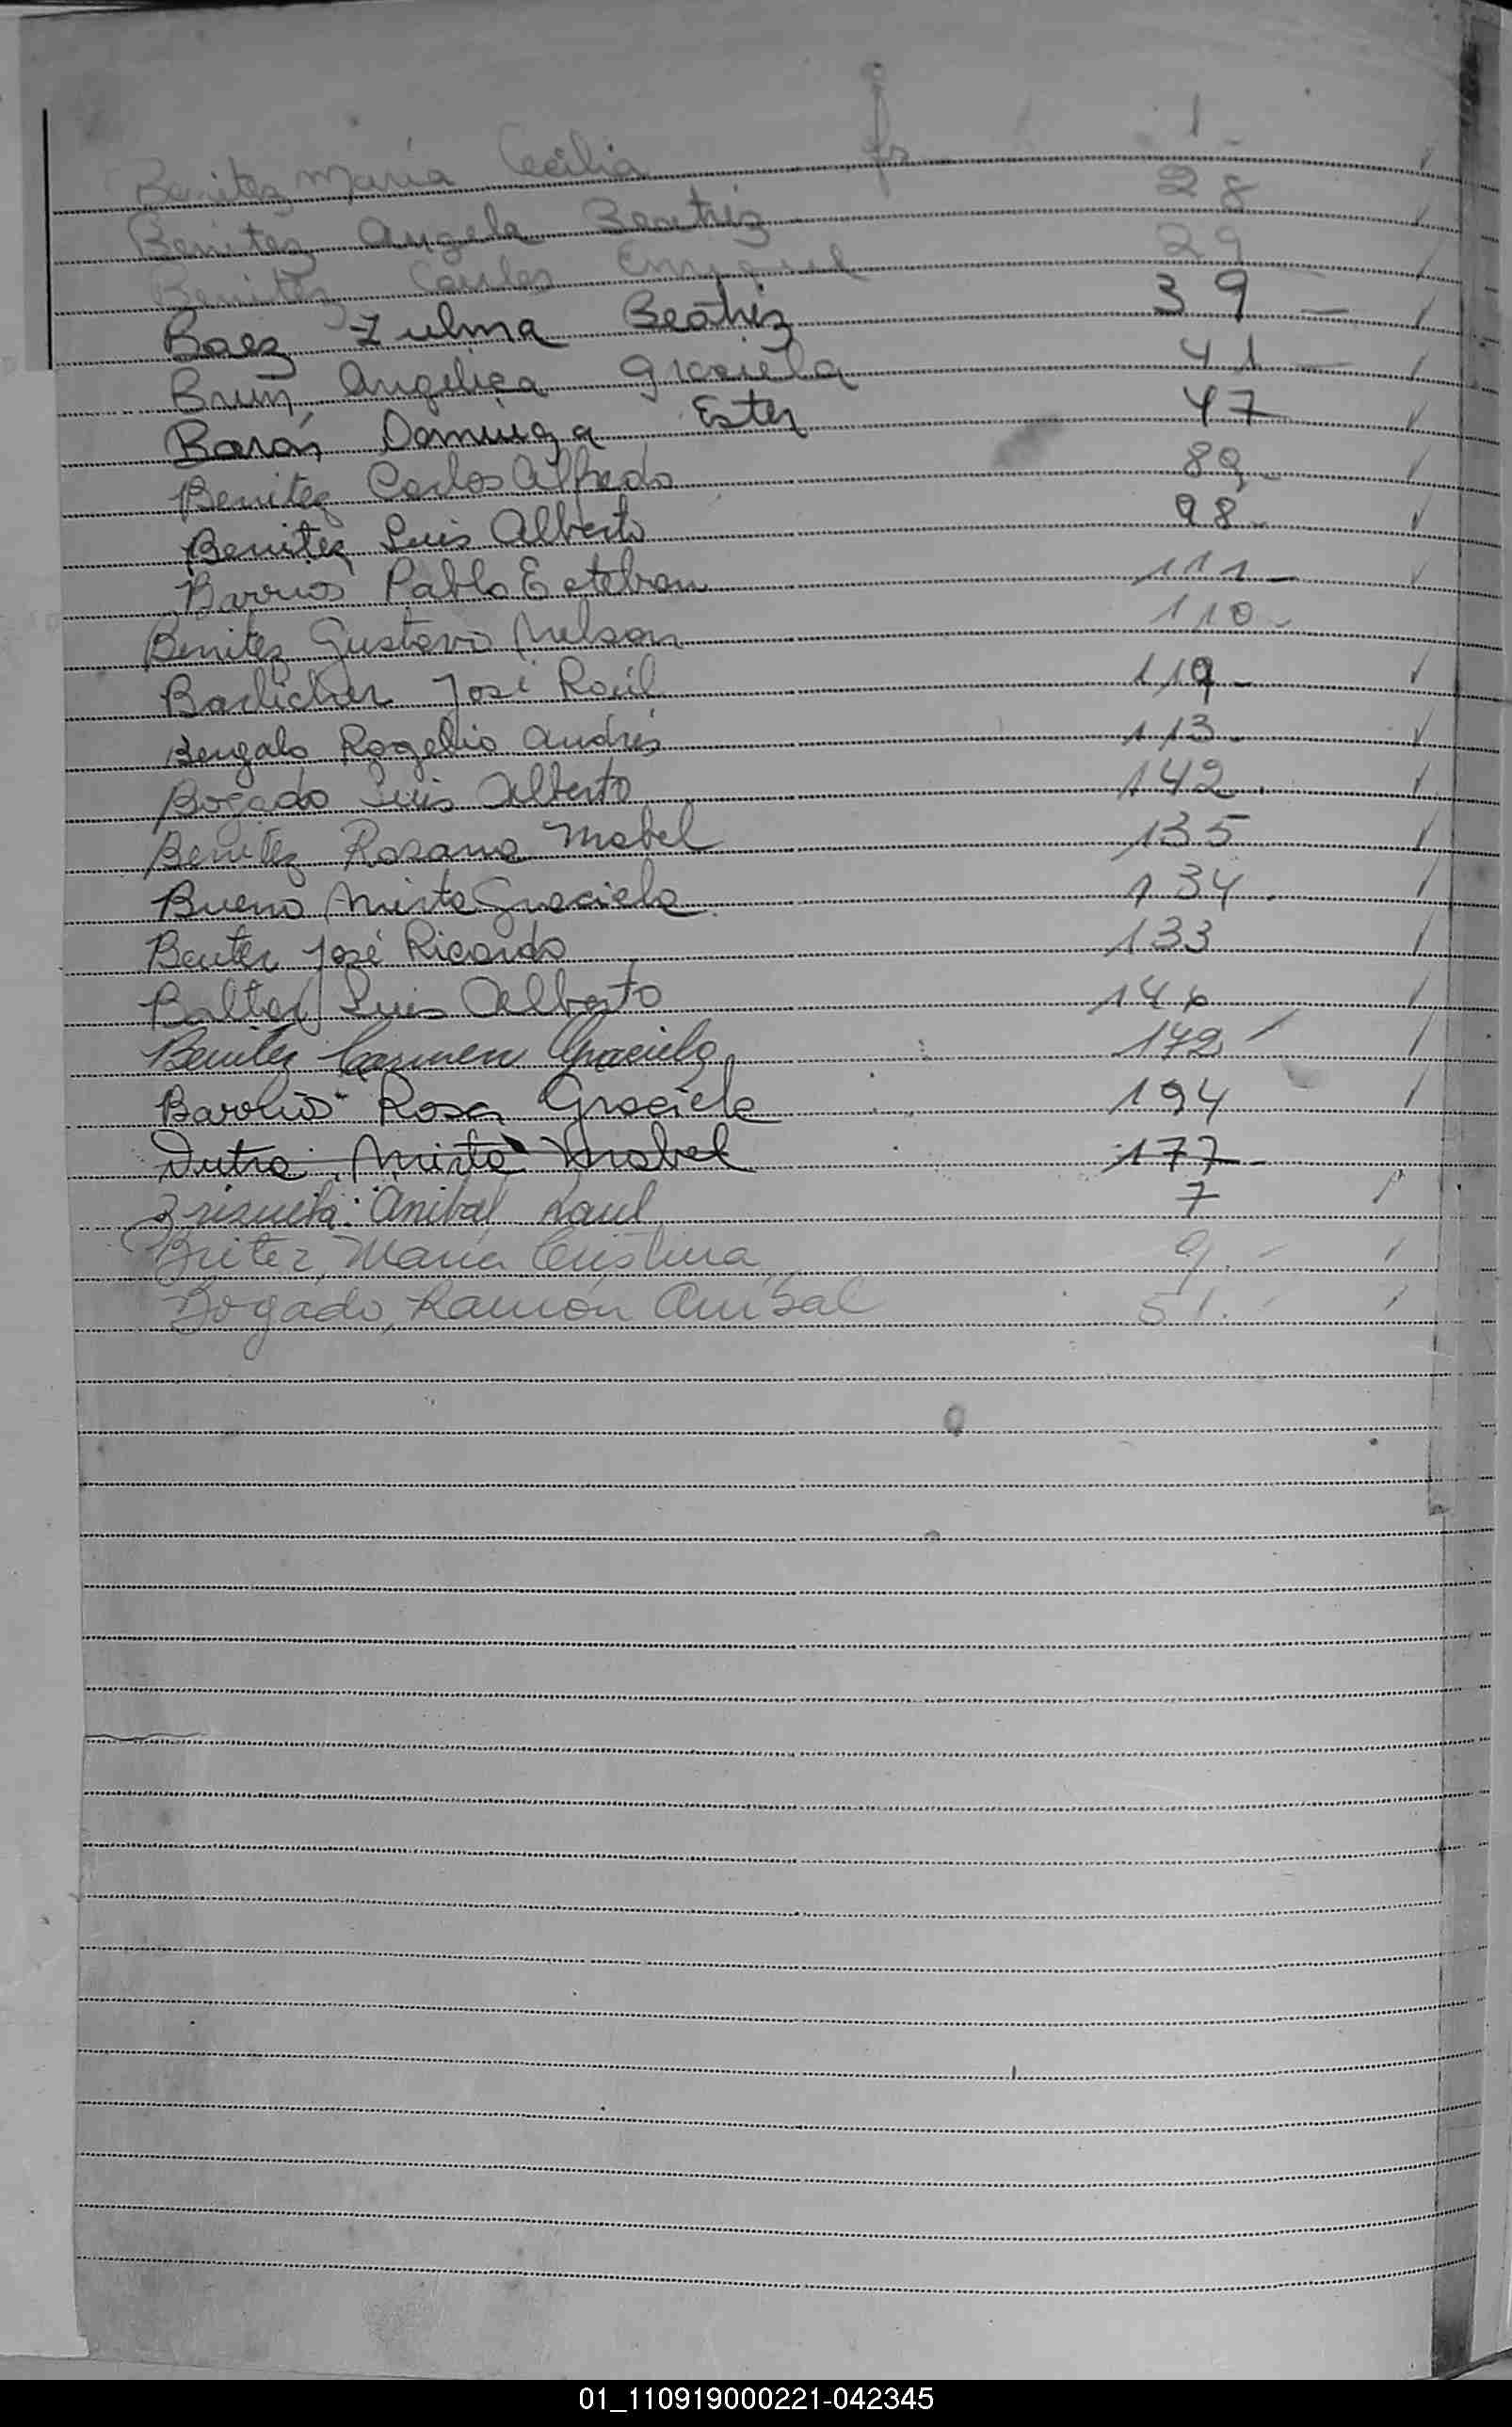 Benitez Maria Cecilia fs 1
Benitez Angela Beatriz 28
Benitez Carlos Enrique 29
Baez Zulma Beátriz 39 —
Brun Angelica Graciela 41 —
Barán Dominga Ester 47
Benitez Carlos Alfredo 89 -
Benitez Luis Alberto 98 -
Barrios Pablo Esteban 111 -
Benitez Gustavo Nelson 110 -
José Raúl 119 -
Bengalo Rogelio Andrés 113 -
Bogado Luis Alberto 142 .
Benitez Rosana Mabel 135
Bueno Mirta Graciela 134 .
José Ricardo 133
Luis Alberto
Benitez Carmen Graciela 172
Barrios Rosa Graciela 194
Dutra Mirta Mabel 177 -
Brisuela Anibal Raul 7
Britez, Maria Cristina 9. -
Bogado, Ramón Anibal 51. -
01_110919000221-042345